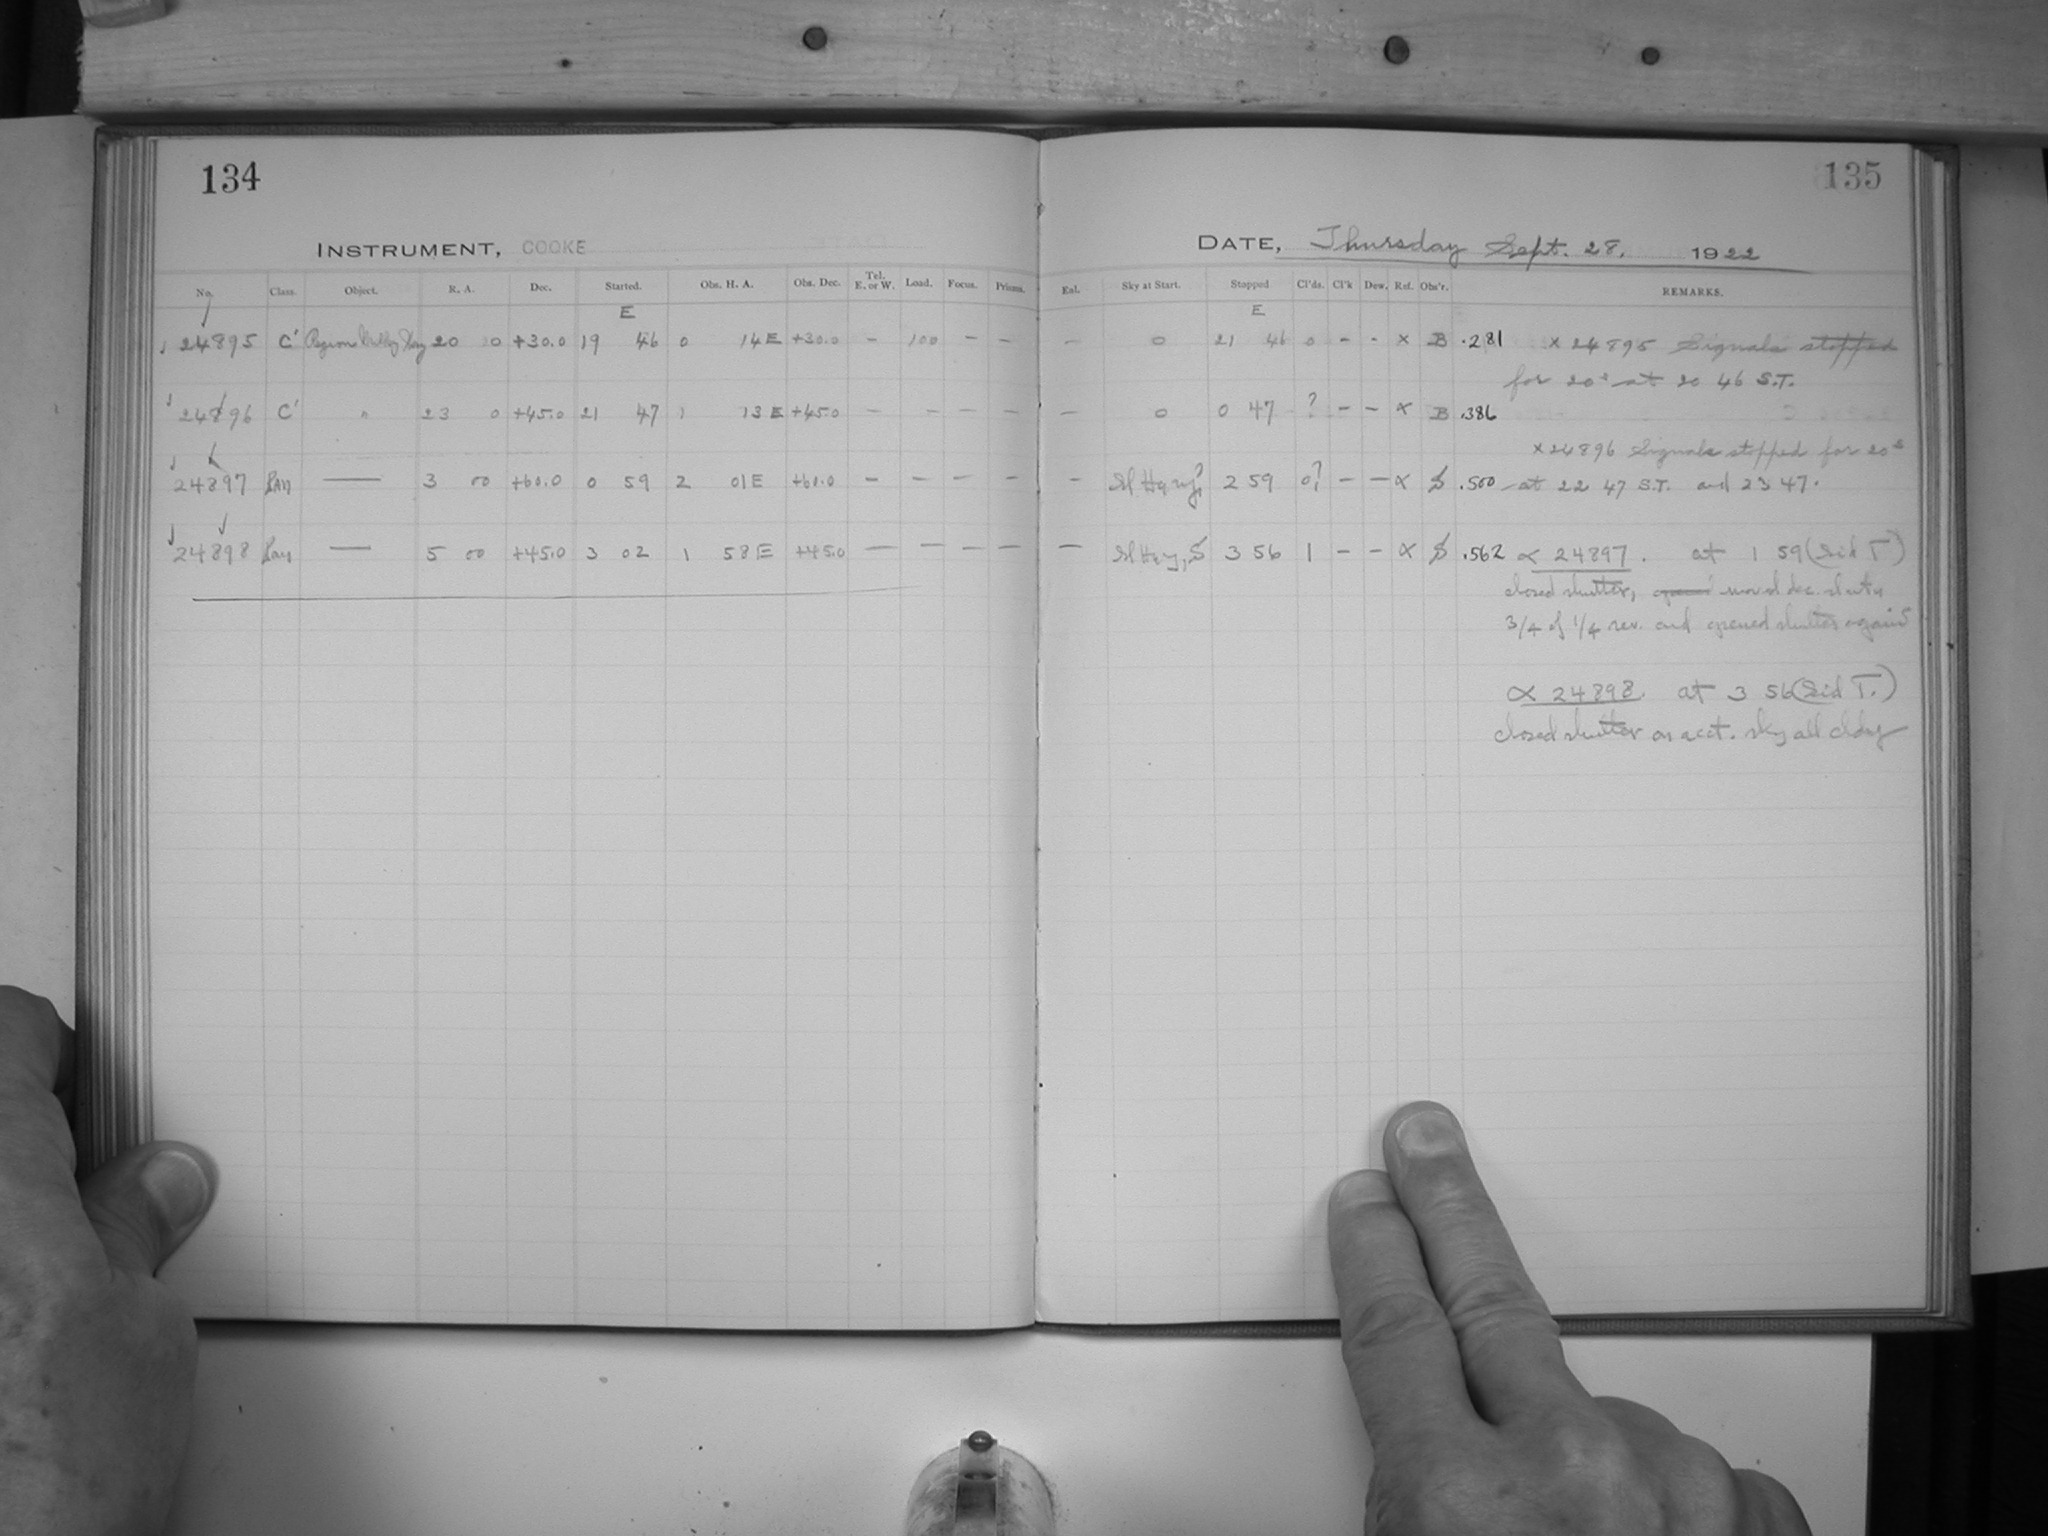 134
135
INSTRUMENT, COOKE
DATE, Thursday Sept. 28, 1922
No. Class. Object. R. A. Dec. Started. Obs. H. A. Obs. Dec. Tel. E. or W. Load. Focus. Prisms.
Eal. Sky at Start. Stopped Cl'ds. Cl'k Dew. Ref. Obs'r. REMARKS.
E
E
24895 C' Region Milky Way 20 0 +30.0 19 46 0 14 E +30.0 - 100 - - - 0 21 46 0 - - x B .281 x 24895 Signals stopped
for 20s at 20 46 S.T.
24896 C' " 23 0 +45.0 21 47 1 13 E +45.0 - - - - - 0 0 47 ? - - x B .386
x 24896 Signals stopped for 20s
24897 Ran — 3 00 +60.0 0 59 2 01 E +60.0 - - - - - Sl Hazy? 2 59 0? - - ∝ S .500 at 22 47 S.T. and 23 47.
24898 Ran — 5 00 +45.0 3 02 1 58 E +45.0 — — — — — Sl Hzy, 5 3 56 1 - - ∝ S .562 ∝ 24897. at 1 59 (Sid T)
closed shutter, moved dec.
3/4 of 1/4 rev. and opened shutter again
∝ 24898. at 3 56 (Sid T.)
closed shutter on acct. sky all cldy